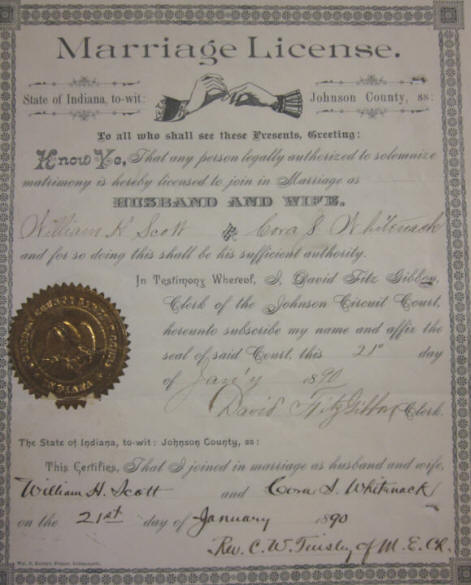 Marriage License.
State of Indiana, to-wit: Johnson County, ss:
To all who shall see these Presents, Greeting:
Know Ye, That any person legally authorized to solemnize
matrimony is hereby licensed to join in Marriage as
HUSBAND AND WIFE,
William H Scott & Cora S Whitenack
and for so doing this shall be his sufficient authority.
In Testimony Whereof, I, David Fitz Gibbon,
Clerk of the Johnson Circuit Court,
hereunto subscribe my name and affix the
seal of said Court, this 21st day
of Jan'y 1890
David Fitz Gibbon Clerk.
INDIANA
The State of Indiana, to-wit: Johnson County, ss:
This Certifies, That I joined in marriage as husband and wife,
William H. Scott and Cora S. Whitenack
on the 21st day of January 1890
Rev. C. W. Tinsley of M. E. Ch.